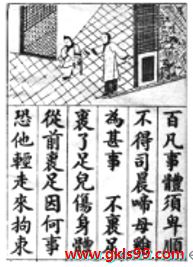 百凡事體須卑順
不得司晨啼母雞
為甚事 不裹足
裹了足兒傷身體
從前裹足因何事
恐他輕走來拘束
www.gkls99.com